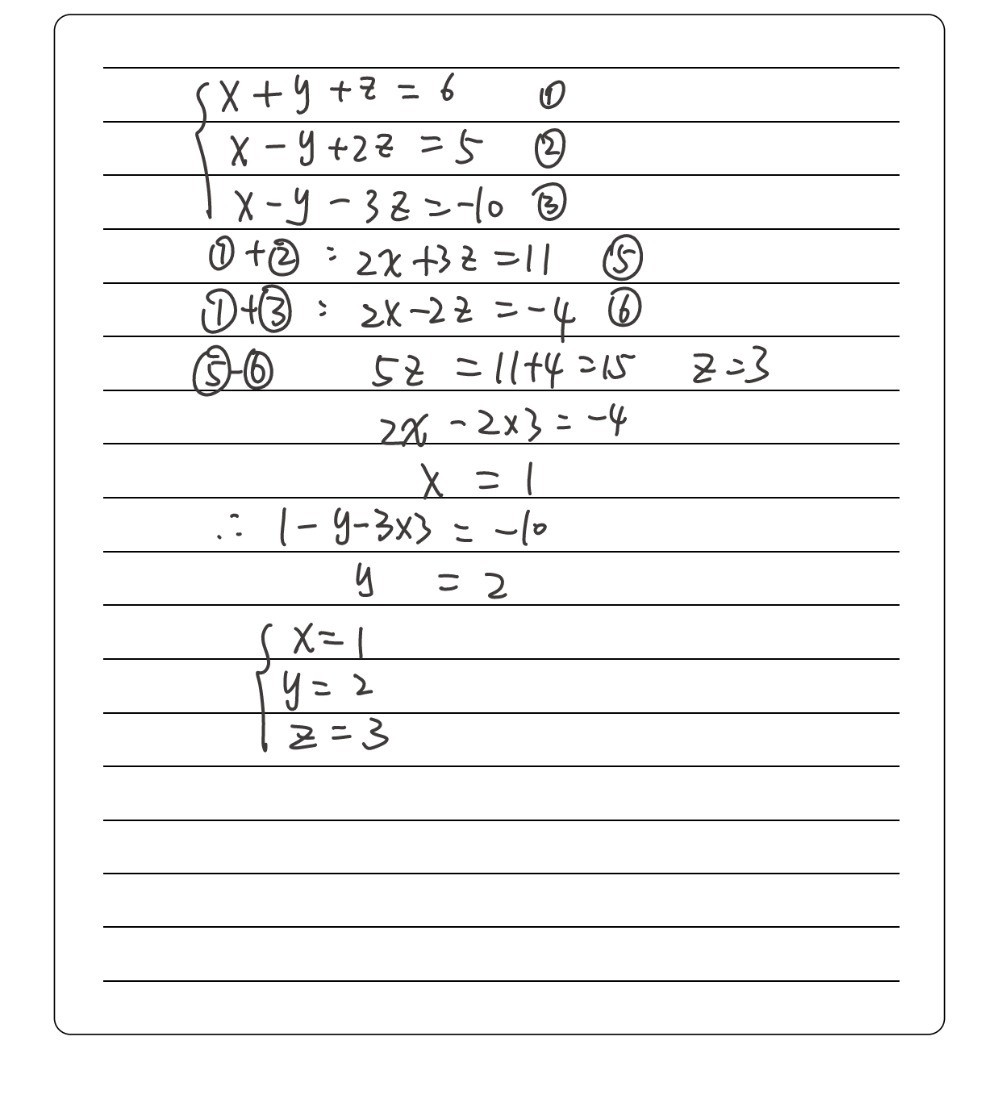 x + y + z = 6 ①
x - y + 2z = 5 ②
x - y - 3z = -10 ③
① + ② : 2x + 3z = 11 ⑤
① + ③ : 2x - 2z = -4 ⑥
⑤ - ⑥ 5z = 11 + 4 = 15 z = 3
2x - 2×3 = -4
x = 1
∴ 1 - y - 3×3 = -10
y = 2
x = 1
y = 2
z = 3